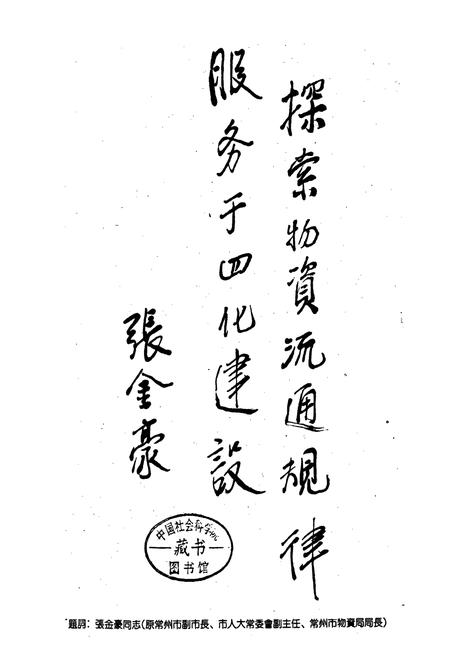 探索物資流通規律
服务于四化建設
張金豪
中国社会科学院
藏书
图书馆
題詞：張金豪同志(原常州市副市長、市人大常委會副主任、常州市物資局局長)